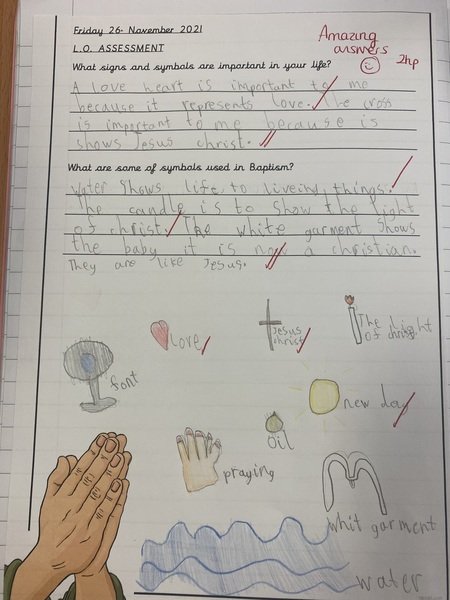 Friday 26th November 2021
L.O. ASSESSMENT
Amazing
answers
2hp
What signs and symbols are important in your life?
A love heart is important to me
because it represents love. The cross
is important to me because is
shows Jesus christ.
What are some of symbols used in Baptism?
Water shows life to liveing things.
The candle is to show the light
of christ. The white garment shows
the baby it is now a christian.
They are like Jesus.
love
Jesus
christ
The light
of christ
font
new day
oil
praying
whit garment
water